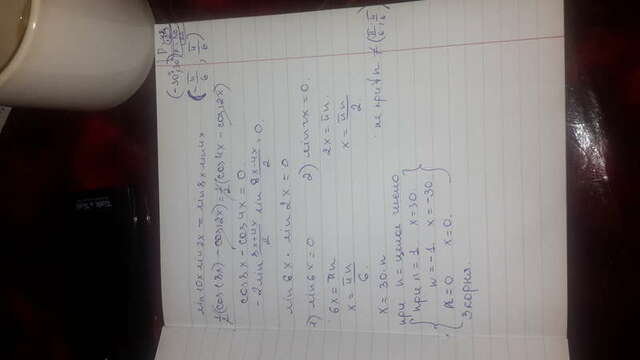 (-30°; 30°)
(-π/6; π/6)
sin 10x sin 2x = sin 8x sin 4x
½(cos(8x) - cos 12x) = ½(cos 4x - cos 12x)
cos 8x - cos 4x = 0.
-2 sin (8x+4x)/2 sin (8x-4x)/2 = 0.
sin 6x · sin 2x = 0
1) sin 6x = 0
6x = πn
x = πn/6
x = 30·n
2) sin 2x = 0.
2x = πn
x = πn/2
при n = целое число
при n = 1 x = 30
n = -1 x = -30
n = 0 x = 0.
3 корня.